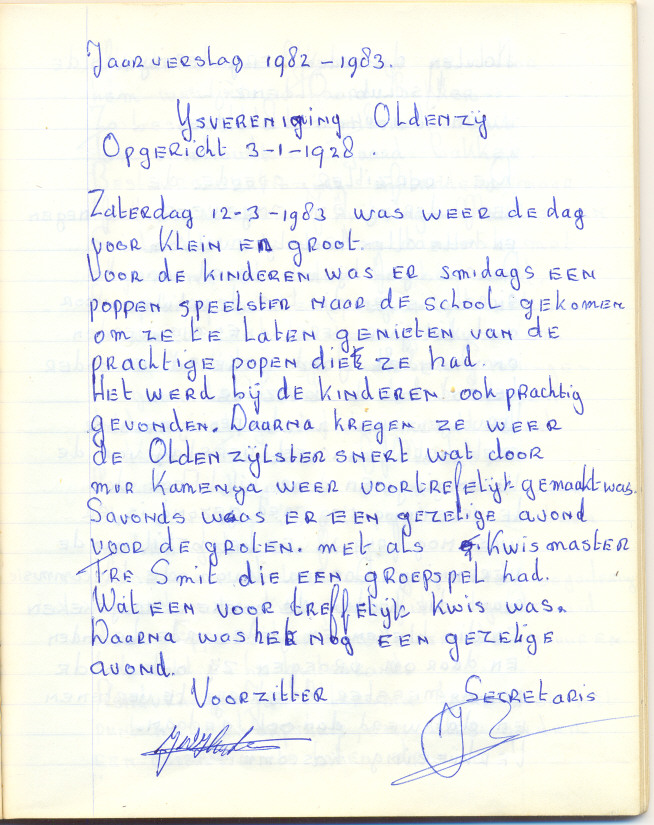 Jaarverslag 1982 - 1983.
Ysvereniging Oldenzÿ
Opgericht 3-1-1928.
Zaterdag 12-3-1983 was weer de dag
voor Klein en groot.
Voor de kinderen was er smidags een
poppen speelster naar de school gekomen
om ze te laten genieten van de
prachtige popen die ze had.
Het werd bÿ de kinderen ook prachtig
gevonden. Daarna kregen ze weer
de Oldenzÿlster snert wat door
mvr Kamenga weer voortrefelÿk gemaakt was.
Savonds was er een gezelige avond
voor de groten. met als Kwismaster
Fre Smit die een groepspel had.
Wat een voor treffelÿk kwis was.
Daarna was het nog een gezelige
avond.
Voorzitter Secretaris